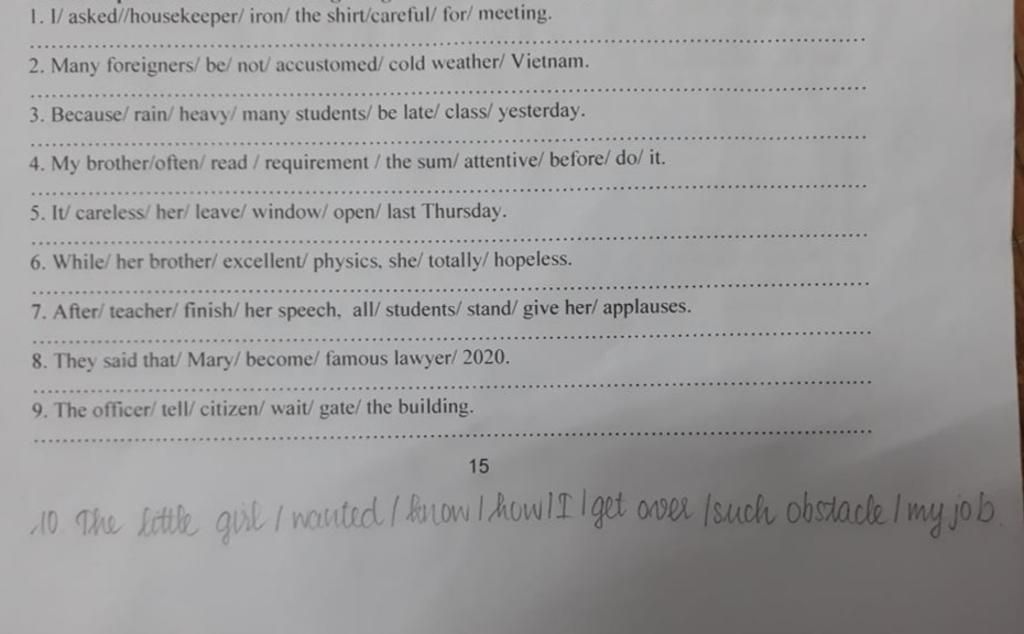 1. I/ asked//housekeeper/ iron/ the shirt/careful/ for/ meeting.
2. Many foreigners/ be/ not/ accustomed/ cold weather/ Vietnam.
3. Because/ rain/ heavy/ many students/ be late/ class/ yesterday.
4. My brother/often/ read / requirement / the sum/ attentive/ before/ do/ it.
5. It/ careless/ her/ leave/ window/ open/ last Thursday.
6. While/ her brother/ excellent/ physics, she/ totally/ hopeless.
7. After/ teacher/ finish/ her speech, all/ students/ stand/ give her/ applauses.
8. They said that/ Mary/ become/ famous lawyer/ 2020.
9. The officer/ tell/ citizen/ wait/ gate/ the building.
15
10. The little girl / wanted / know / how / I / get over / such obstacle / my job.